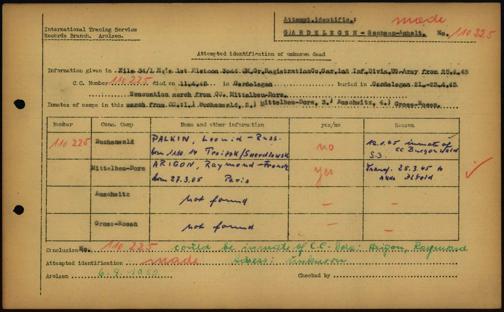 International Tracing Service
Records Branch. Arolsen.
Attempt.identific.: made
GARDELEGEN - Sachsen-Anhalt. No. 110 225
Attempted identification of unknown dead
Information given in File 54/1 1st Platoon 3042 QM.Gr.Registration Co. Inf.Divis. US.Army from 25.4.45
C.C. Number 110 225 died on 11.4.45 in Gardelegen buried in Gardelegen 21.-25.4.45
Evacuation march from CC. Mittelbau-Dora.
Inmates of camps in this march from CC.: 1.) Buchenwald, 2.) Mittelbau-Dora, 3.) Auschwitz, 4.) Gross-Rosen.
Number Conc. Camp Name and other information yes/no
110 225 Buchenwald PALKIN, Leonid - Russ. no 12.1.45 inmate of
born CC Buchenwald
Mittelbau-Dora ARIGON, Raymond - French yes Transf. 25.3.45 to
born 27.3.05 Paris
Auschwitz not found - -
Gross-Rosen not found - -
Conclusion No. 110.225 could be inmate of C.C. Dora: Arigon, Raymond
Attempted identification made Address: Unknown
Arolsen 6.9.1950 Checked by